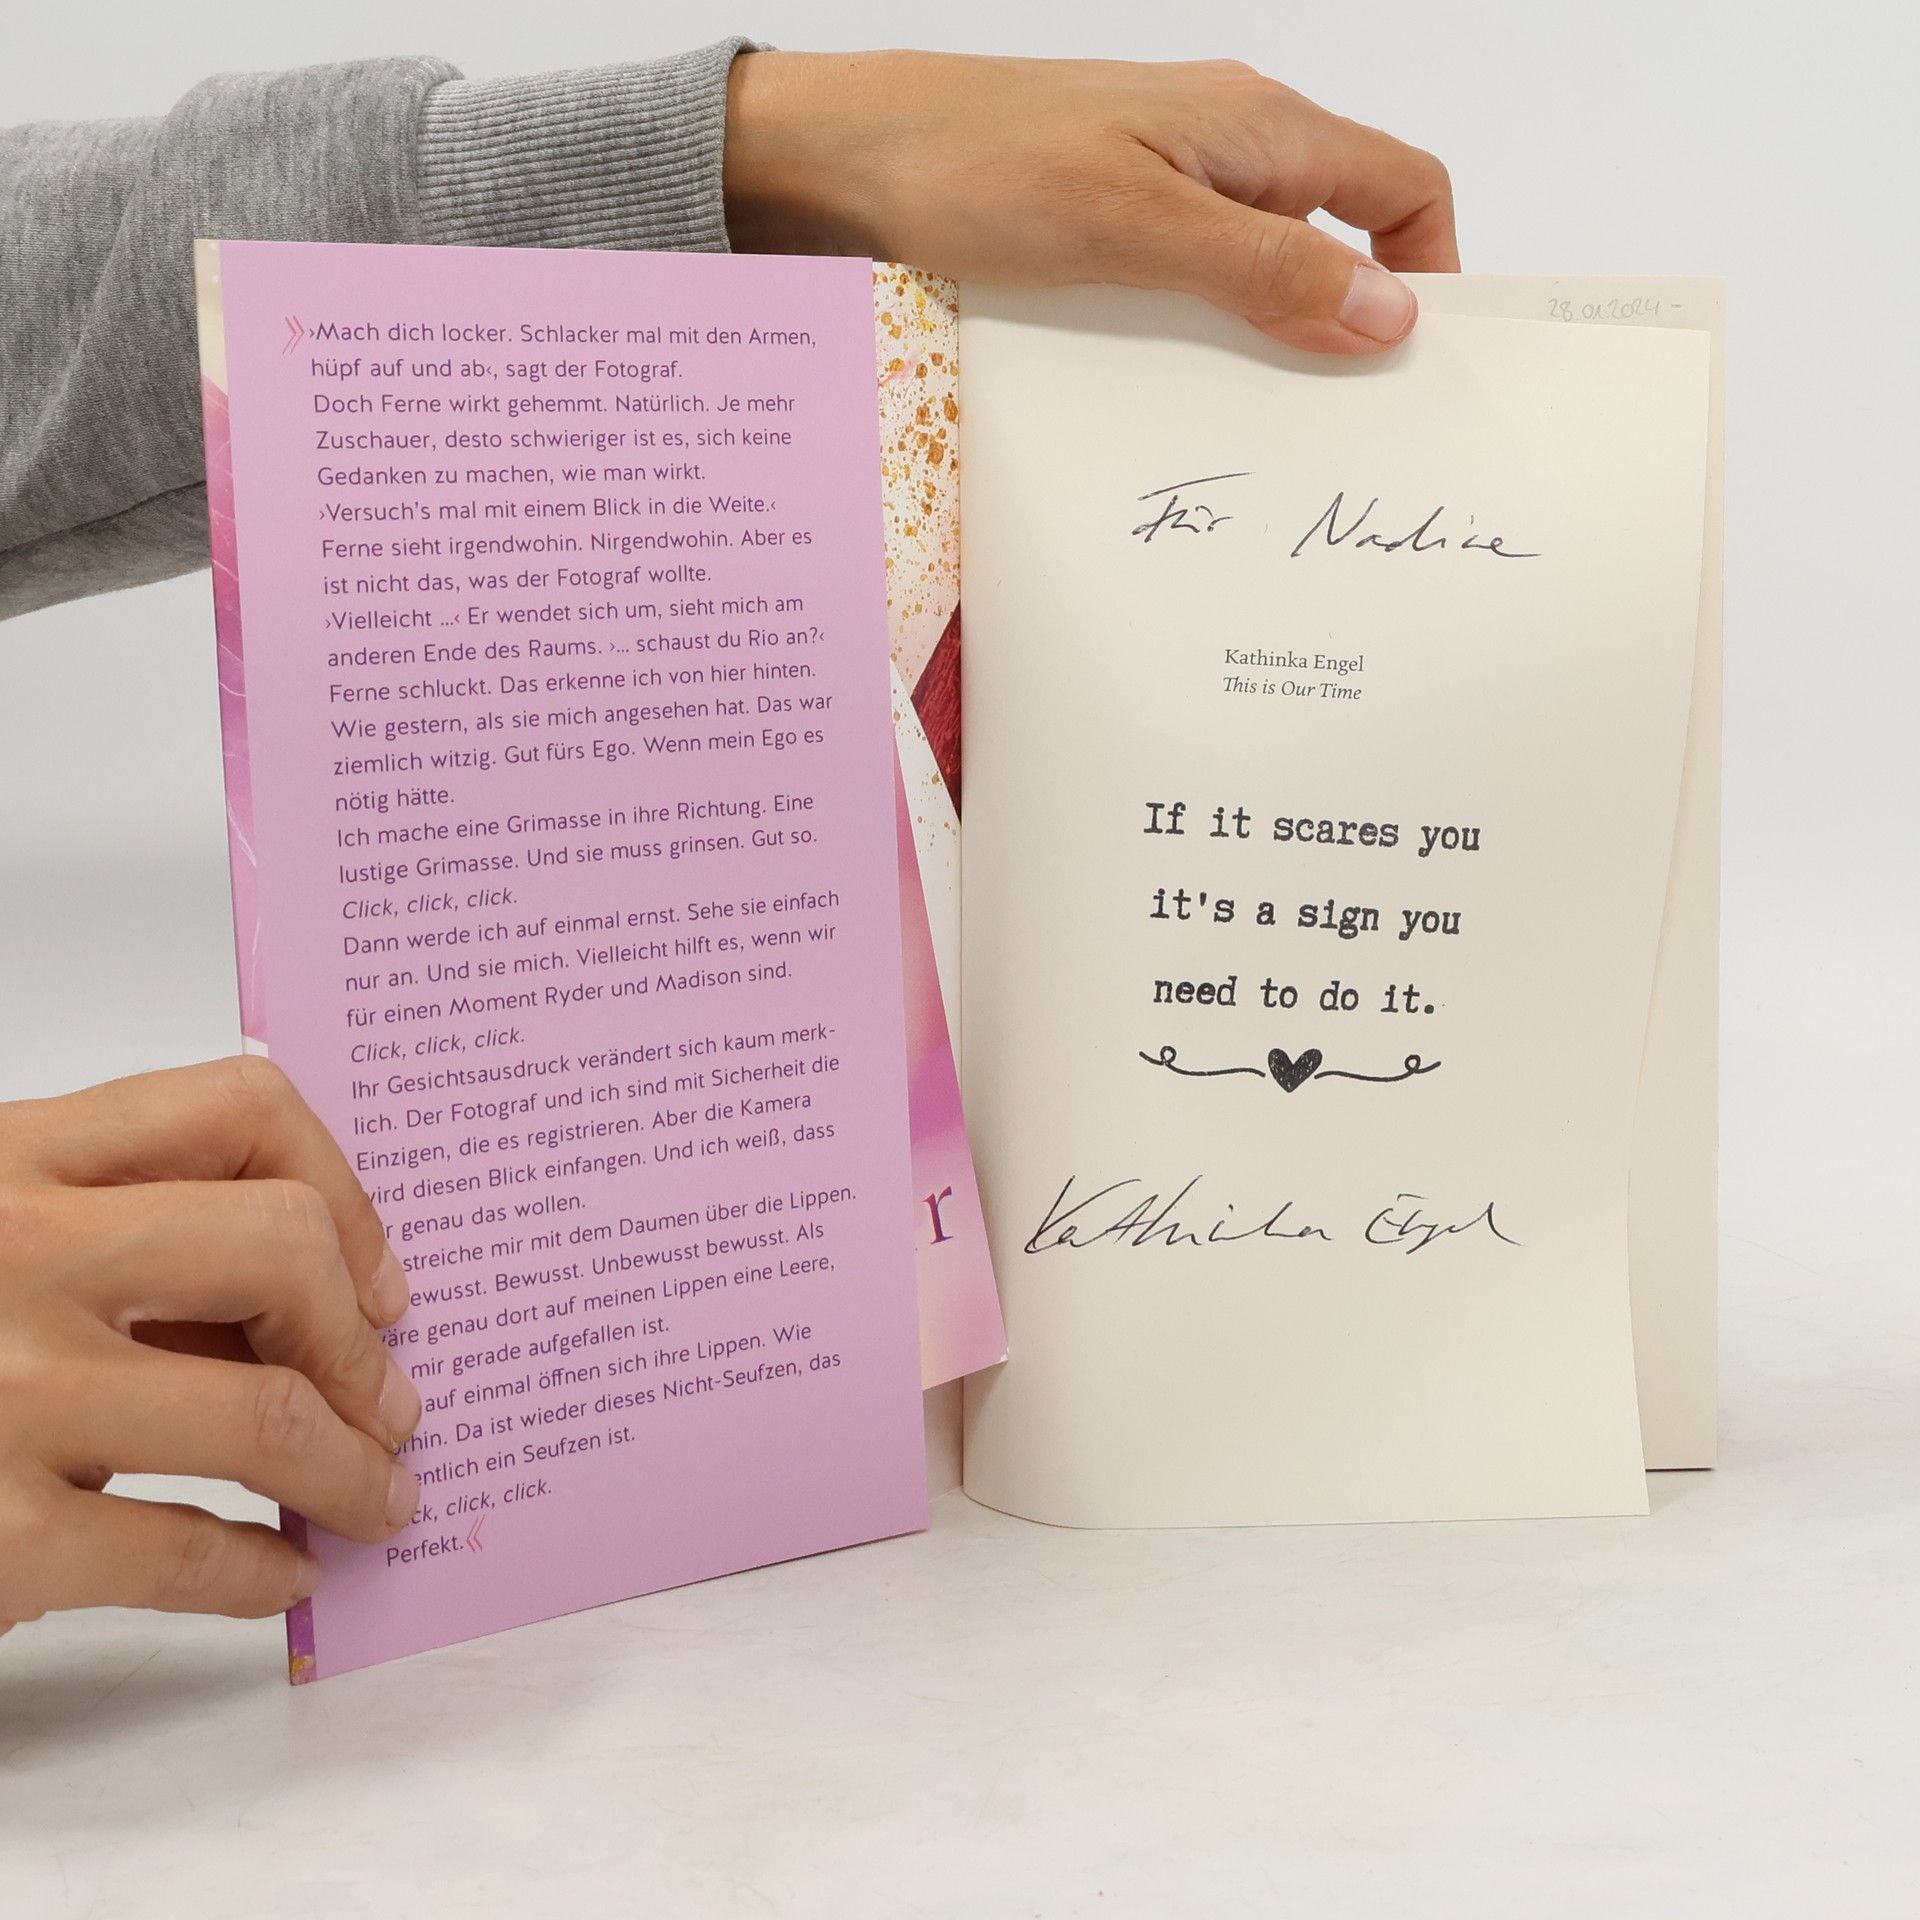 »›Mach dich locker. Schlacker mal mit den Armen,
hüpf auf und ab‹, sagt der Fotograf.
Doch Ferne wirkt gehemmt. Natürlich. Je mehr
Zuschauer, desto schwieriger ist es, sich keine
Gedanken zu machen, wie man wirkt.
›Versuch's mal mit einem Blick in die Weite.‹
Ferne sieht irgendwohin. Nirgendwohin. Aber es
ist nicht das, was der Fotograf wollte.
›Vielleicht ...‹ Er wendet sich um, sieht mich am
anderen Ende des Raums. ›... schaust du Rio an?‹
Ferne schluckt. Das erkenne ich von hier hinten.
Wie gestern, als sie mich angesehen hat. Das war
ziemlich witzig. Gut fürs Ego. Wenn mein Ego es
nötig hätte.
Ich mache eine Grimasse in ihre Richtung. Eine
lustige Grimasse. Und sie muss grinsen. Gut so.
Click, click, click.
Dann werde ich auf einmal ernst. Sehe sie einfach
nur an. Und sie mich. Vielleicht hilft es, wenn wir
für einen Moment Ryder und Madison sind.
Click, click, click.
Ihr Gesichtsausdruck verändert sich kaum merk-
lich. Der Fotograf und ich sind mit Sicherheit die
Einzigen, die es registrieren. Aber die Kamera
wird diesen Blick einfangen. Und ich weiß, dass
r genau das wollen.
streiche mir mit dem Daumen über die Lippen.
ewusst. Bewusst. Unbewusst bewusst. Als
äre genau dort auf meinen Lippen eine Leere,
mir gerade aufgefallen ist.
auf einmal öffnen sich ihre Lippen. Wie
orhin. Da ist wieder dieses Nicht-Seufzen, das
entlich ein Seufzen ist.
ck, click, click.
Perfekt.«
r
28.01.2024 -
Für Nadine
Kathinka Engel
This is Our Time
If it scares you
it's a sign you
need to do it.
Kathinka Engel